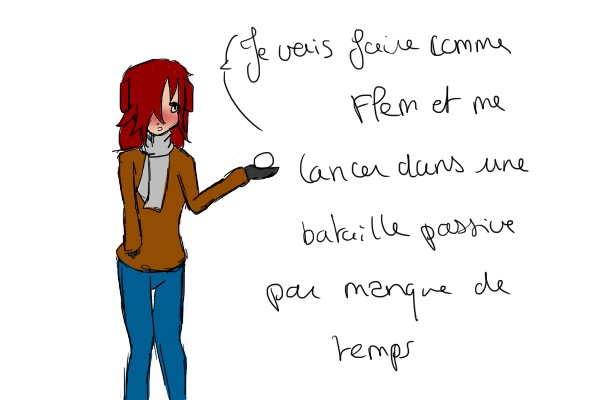 Je vais faire comme
Flem et me
lancer dans une
bataille passive
par manque de
temps